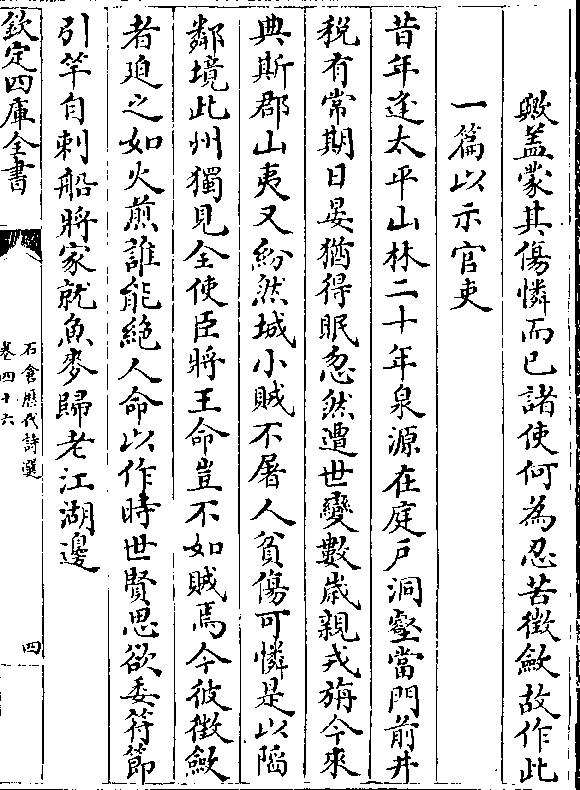 歟盖蒙其傷憐而已諸使何為忍苦徴歛故作此
一篇以示官吏
昔年逢太平山林二十年泉源在庭戸洞壑當門前井
税有常期日晏猶得眠忽然遭世變數歳親戎旃今來
典斯郡山夷又紛然城小賊不屠人貧傷可憐是以陥
鄰境此州獨見全使臣將王命豈不如賊焉今彼徴歛
者廹之如火煎誰能絶人命以作時世賢思欲委符節
引竿自刺船將家就魚麥歸老江湖邊
欽定四庫全書
石倉歴代詩選
卷四十六
四